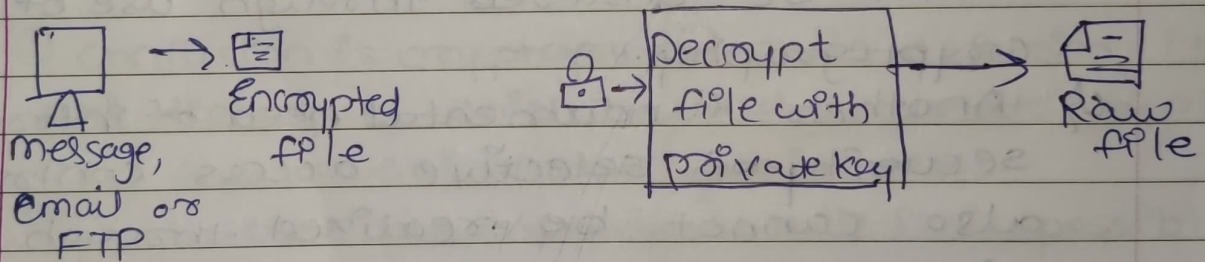 message,
email or
FTP
Encrypted
file
Decrypt
file with
private key
Raw
file